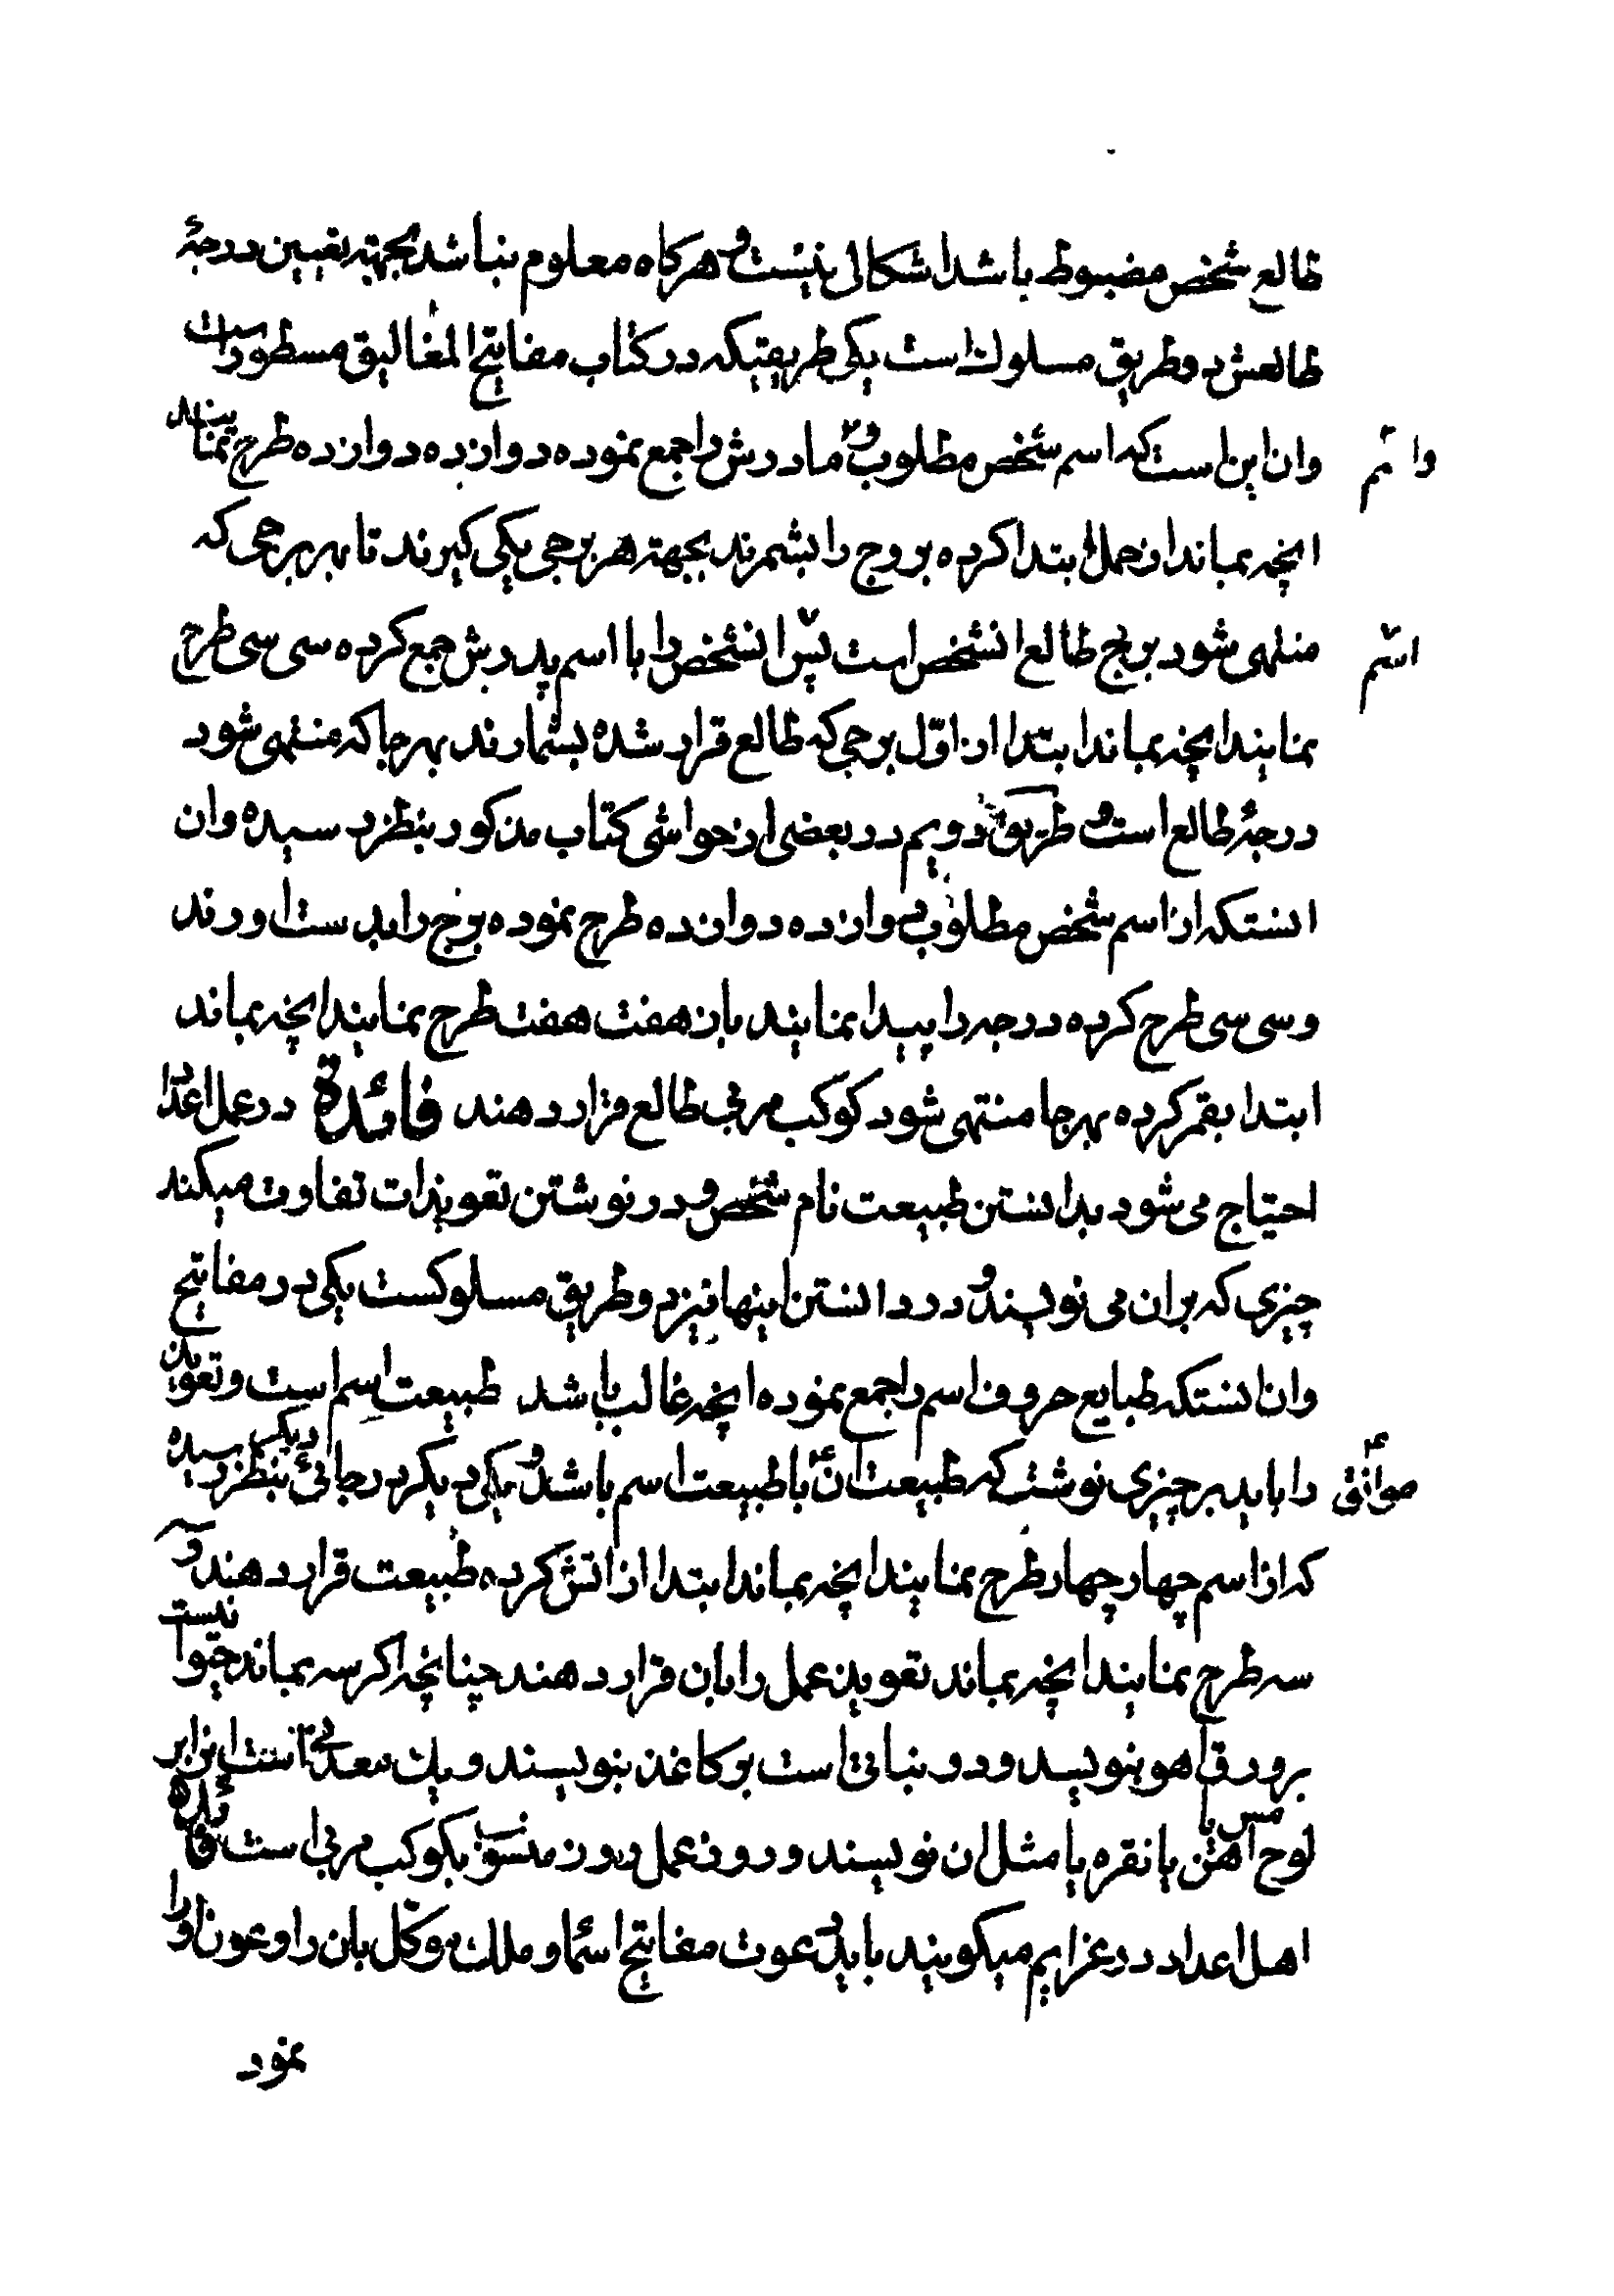 طالع شخص مضبوط باشد اشکالی نیست و هرکاه معلوم نباشد بجهته تعیین درجهٔ
طالعش دو طریق مسلوك است یکی طریقیکه در کتاب مفاتیح المغالیق مسطور است
وان این است که اسم شخص مطلوب و مادرش را جمع نموده دوازده دوازده طرح نمایند
واسم
انچه بماند از حمل ابتدا کرده بروج را بشمرند بجهته هر برجی یکی کیرند تا بهر برجی که
منتهی شود برج طالع انشخص است پس انشخص را با اسم پدرش جمع کرده سی سی طرح
اسم
نمایند انچه بماند ابتدا از اوّل برجی که طالع قرار شده بشمارند بهر جا که منتهی شود
درجهٔ طالع است و طریق دویم در بعضی از حواشی کتاب مذکور بنظر رسیده وان
انستکه از اسم شخص مطلوب دوازده دوازده طرح نموده برج را بدست اورند
و سی سی طرح کرده درجه را پیدا نمایند باز هفت هفت طرح نمایند انچه بماند
ابتدا بقمر کرده بهر جا منتهی شود کوکب مربی طالع قرار دهند فائدة در عمل اعداد
احتیاج می شود بدانستن طبیعت نام شخص و در نوشتن تعویذات تفاوت میکند
چیزی که بران می نویسند و در دانستن اینها نیز دو طریق مسلوکست یکی در مفاتیح
وان انستکه طبایع حروف اسم را جمع نموده انچه غالب باشد طبیعت اسم است و تعویذ
را باید بر چیزی نوشت که طبیعت ان با طبیعت اسم باشد و یکی دیکر در جائی بنظر رسیده
موافق
دیکر
که از اسم چهار چهار طرح نمایند انچه بماند ابتدا از اتش کرده طبیعت قرار دهند و
سه طرح نمایند انچه بماند تعویذ عمل را بان قرار دهند چنانچه اکر سه بماند حیوانیست
بر ورق اهو بنویسد و دو نباتی است بر کاغذ بنویسند و یك معدنی است انرا بر
لوح اهن یا مس یا نقره یا مثل ان نویسند و روز عمل در روز منسوب بکوکب مربی است فائده
اهل اعداد در عزایم میکویند باید دعوت مفاتیح اسما و ملك موکّل بان را و عون او را
نمود